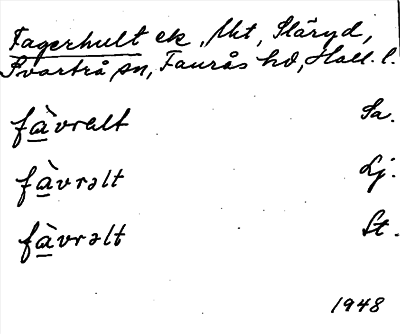 Fagerhult ek, Mt, Släryd,
Svartrå sn, Faurås hd, Hall. l.
fà̲vrəlt Sa.
fà̲vrəlt Lj.
fà̲vrəlt St.
1948